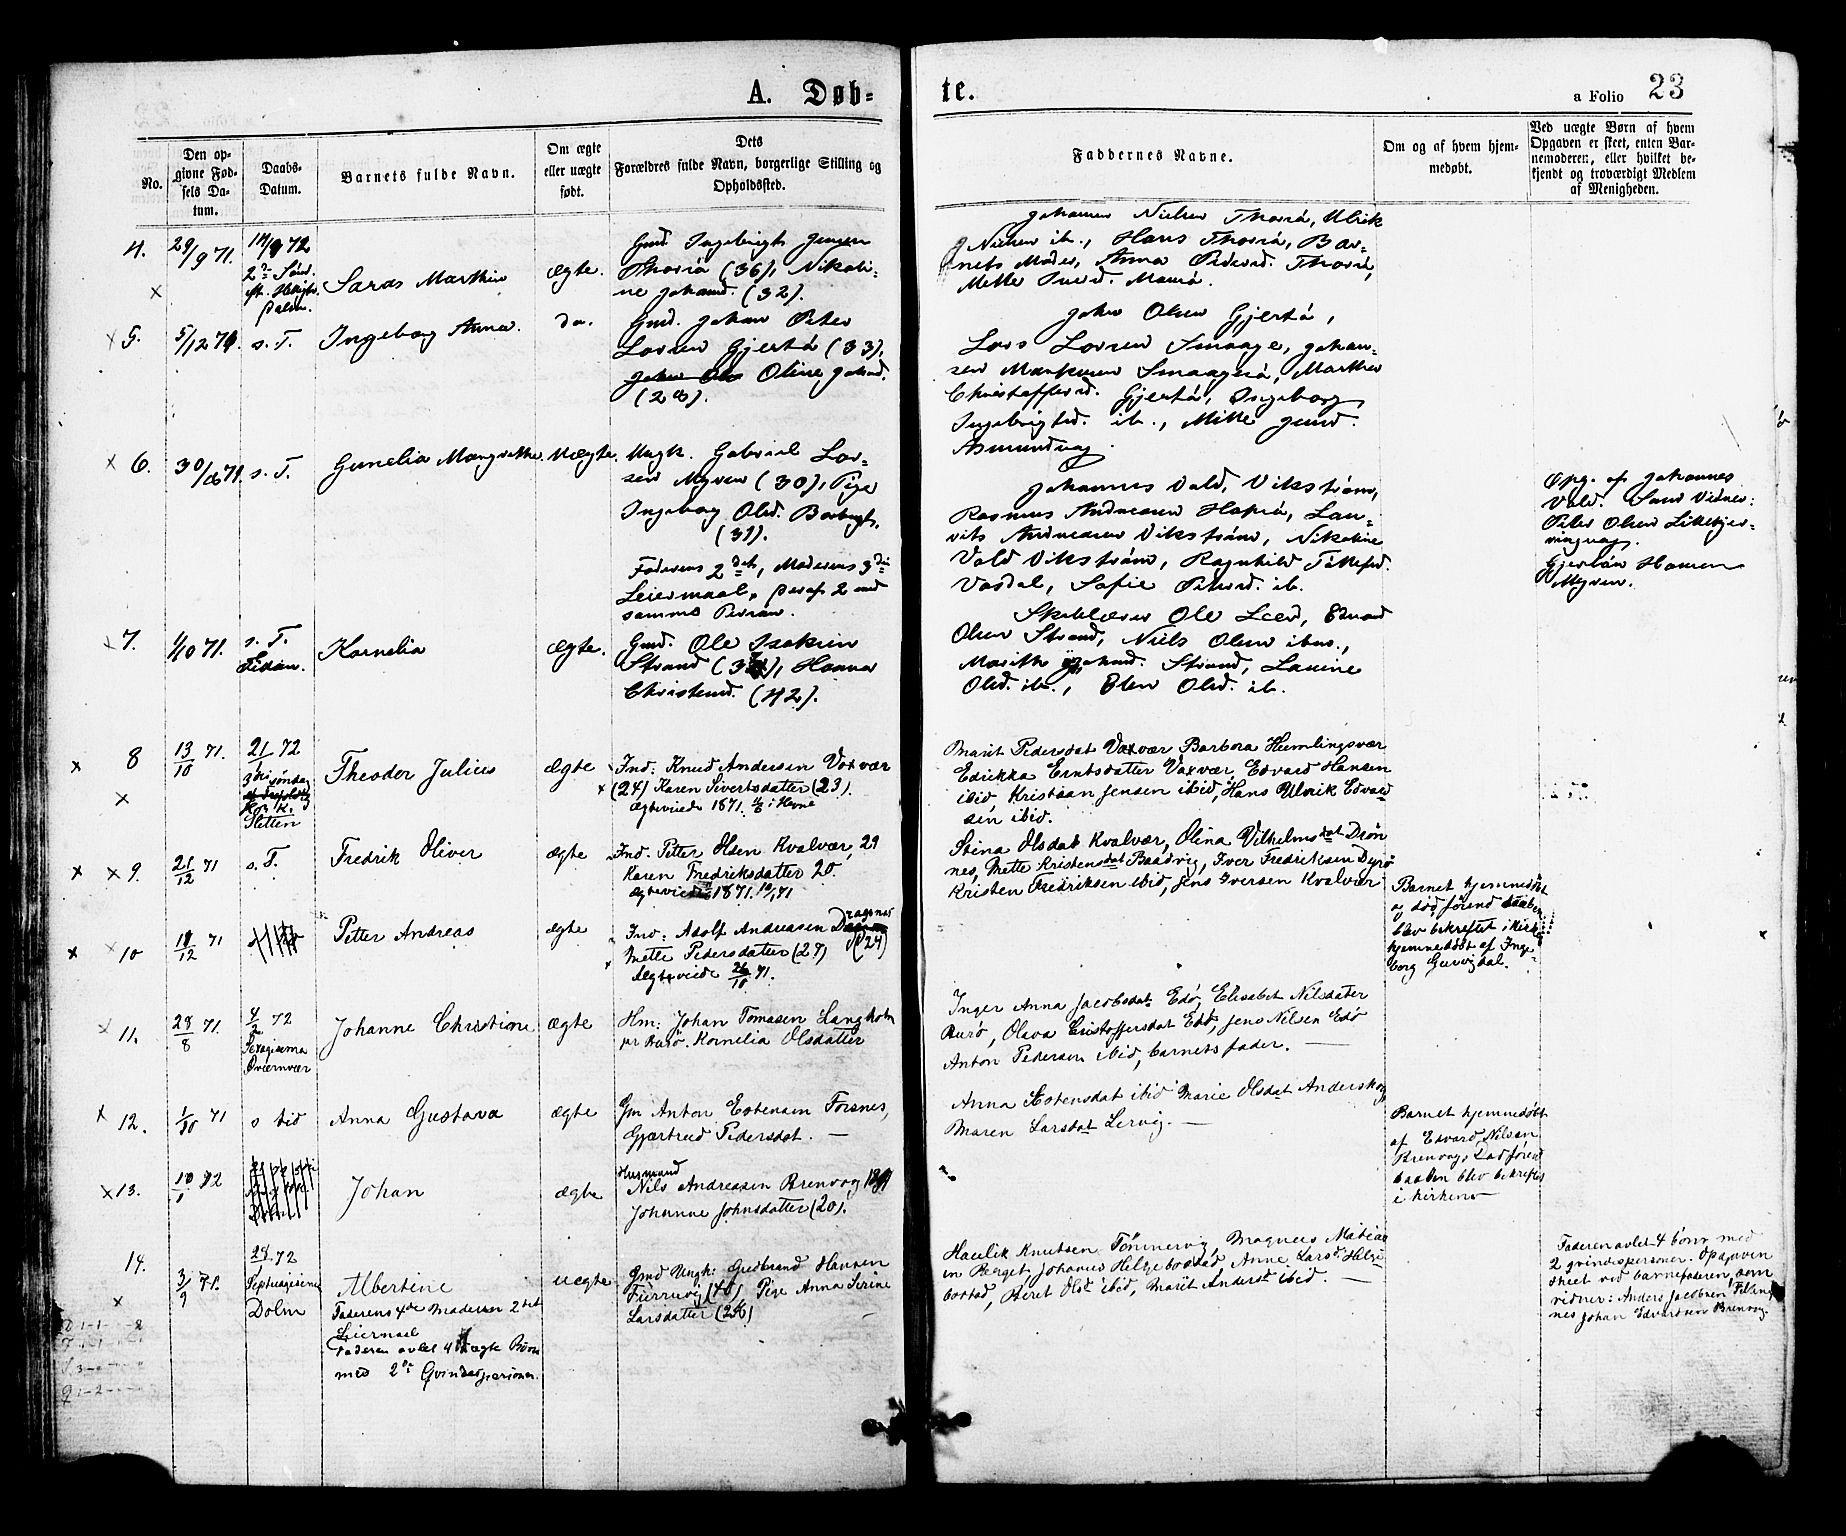 A. Døb-
te.
a Folio 23
No.
Den op-
givne Fød-
sels Da-
tum.
Daabs-
Datum.
Barnets fulde Navn.
Om ægte
eller uægte
født.
Dets
Forældres fulde Navn, borgerlige Stilling og
Opholdssted.
Faddernes Navne.
Om og af hvem hjem-
medøbt.
Ved uægte Børn af hvem
Opgaven er skeet, enten Bar-
nemoderen, eller hvilket be-
kjendt og troværdigt Medlem
af Menigheden.
4.
29/9 71.
72
Ægte.
Gmd. Ingebrigt Jensen
(36), Nikoli-
ne Johansd. (32).
Johannes Nielsen Thorsø, Ulrik
Nielsen ib., Hans Thorsø, Bar-
nets Moder, Anna Pedersd. Thorsø,
Mette
5.
5/12 71.
s. T.
Ingeborg Anna.
do.
Gmd. Johan Peter
Larsen Gjertø (33),
Oline Johnd.
(28).
John Olsen Gjertø,
Lars Larsen Smaage, Johan-
sen Markussen Smaagesø, Marthe
Christoffersd. Gjertø, Ingeborg
Ingebrigtsd. ib., Mette Jensd.
Asmundvag.
6.
30/8 71.
s. T.
Gunelia Margrethe.
Uægte.
Ungk. Gabriel Lar-
sen Myren (30), Pige
Ingeborg Olsd.
(31).
Faderens 2det, Moderens 3die
Leiermaal, deraf 2 med
samme Person.
Johannes Vald. Vikstrøm,
Rasmus Andreasen Hafsø, Lau-
rits Andreasen Vikstrøm, Nikoline
Vald Vikstrøm, Ragnhild
Vasdal, Sofie Petersd. ib.
Opg. af Johannes
Vald. Samt Vidner:
Peter Olsen
Hansen
Myren.
7.
1/10 71.
s. T.
Kornelia
Ægte.
Gmd. Ole Isaksen
Strand Hanna
Christensd. (42).
Skolelærer Ole Leed, Edvard
Olsen Strand, Niels Olsen ibid.,
Marith Johansd. Strand, Lauine
Olsd. ib., Elen Olsd. ib.
8
13/10 71.
21/1 72
3die søndag
Kor. K.
Sletten
Theodor Julius
Ægte
Ind: Knud Andersen Vaxvær
(24) Karen Sivertsdatter (23).
Ægteviede 1871. i Hevne
Marit Pedersdat Vaxvær Barbora Humlingsvær
Edrikka Erntsdatter Vaxvær, Edvard Hansen
ibid, Kristian Jensen ibid, Hans Ulrik Edvard-
sen ibid.
9.
21/12 71
s. T.
Fredrik Oliver
ægte
Ind. Petter Olsen Kvalvær, 29
Karen Fredriksdatter 20.
Ægteviede 1871.
Stina Olsdat Kvalvær, Olina Vilhelmsdat Drøn
nes, Mette Kristensdat Baadvig, Iver Fredriksen Dyrø
Kristen Fredriksen ibid, Jens Iversen Kvalvær
10
71
Petter Andreas
ægte
Ind: Adolf Andreasen
(24)
Mette Pedersdatter (27)
Ægteviede 26/10 71.
Barnet hjemmedøbt
og død førend daaben
blev bekreftet i Kirken
hjemmedøbt af Inge-
borg
11.
28/8 71.
4/2 72
Sexagesima
Qværnvær
Johanne Christine
ægte
Hm: Johan Tomasen Langholm
Kornelia Olsdatter
Inger Anna Jacobsdat Edø, Elisabet Nilsdater
Burø, Olava Cristoffersdat Edø, Jens Nilsen Edø
Anton Pedersen ibid, barnets fader.
12.
1/10 71
s tid
Anna Gustava
ægte
Gm Anton Estensen Forsnes,
Gjertrud Pedersdat.
Anna Estensdat ibid Marie Olsdat Anderskog
Maren Larsdat Lervig.
Barnet hjemmedøbt
af Edvard Nilsen
Brenvog, Død førend
daaben blev bekreftet
i kirken
13.
72
Johan
ægte
Husmand
Nils Andreasen Brenvog
Johanne Johnsdatter (20).
14.
3/9 71.
28/1 72
Septuagesima
Dolm
Albertine
Faderens 4de Moderen 2det
Leiermaal
Faderen avlet 4 uægte Børn
med 2de Qvindespersoner.
uægte
Gmd Ungk: Gudbrand Hansen
(40) Pige Anna Serine
Larsdatter (26)
Haulik Knutsen Tømmervog, Magnus Matias
en Berget, Johanes Helgebostad, Anne Larsd Helge
bostad, Beret Olsd ibid, Marit Andersd ibid.
Faderen avlet 4 børn med
2 qvindespersoner. Opgaven
skeet ved barnefaderen, som
vidner: Anders Jacobsen
nes Johan Edvardsen Brenvog.